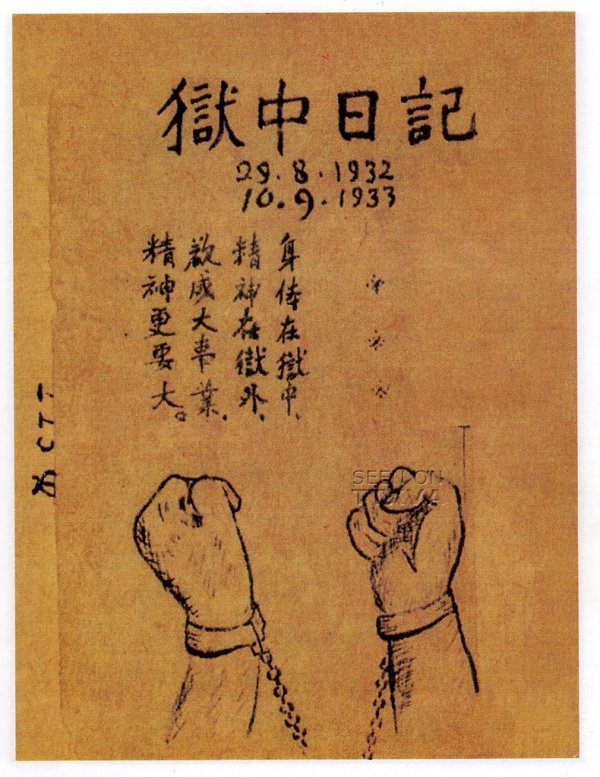 獄中日記
29.8.1932
10.9.1933
身体在獄中、
精神在獄外、
欲成大事業、
精神更要大。
CTT
SEEN ON